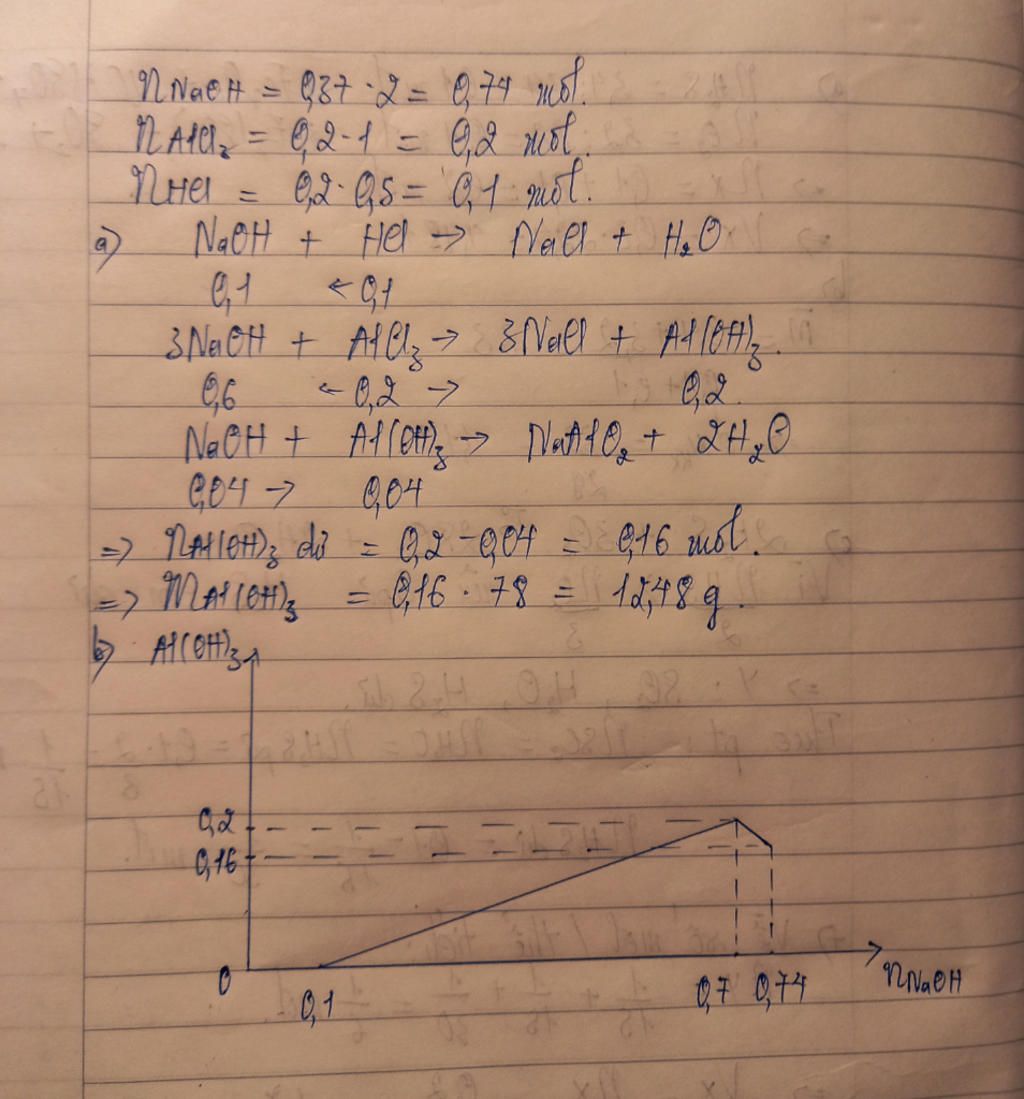 nNaOH = 0,37 · 2 = 0,74 mol.
nAlCl₃ = 0,2 · 1 = 0,2 mol.
nHCl = 0,2 · 0,5 = 0,1 mol.
a) NaOH + HCl → NaCl + H₂O
0,1 ← 0,1
3NaOH + AlCl₃ → 3NaCl + Al(OH)₃.
0,6 ← 0,2 → 0,2.
NaOH + Al(OH)₃ → NaAlO₂ + 2H₂O
0,04 → 0,04
=> nAl(OH)₃ dư = 0,2 - 0,04 = 0,16 mol.
=> mAl(OH)₃ = 0,16 · 78 = 12,48 g.
b) Al(OH)₃
0,2
0,16
0 0,1 0,7 0,74 nNaOH